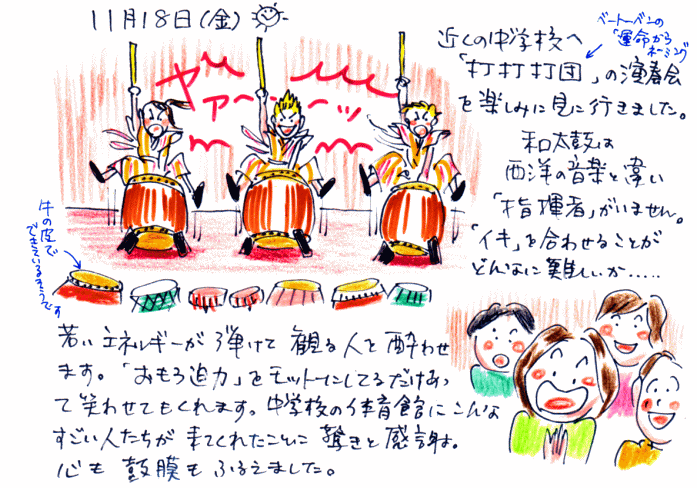 11月18日(金)
ヤァーーーッ
近くの中学校へ
ベートーベンの
「運命」から
ネーミング
「打打打団」の演奏会
を楽しみに見に行きました。
和太鼓は
西洋の音楽と違い
「指揮者」がいません。
「イキ」を合わせることが
どんなに難しいか.....
牛の皮で
できているそうです
若いエネルギーが弾けて観る人を酔わせ
ます。「おもろ迫力」をモットーにしてるだけあっ
て笑わせてもくれます。中学校の体育館にこんな
すごい人たちが来てくれたことに驚きと感謝。
心も鼓膜もふるえました。